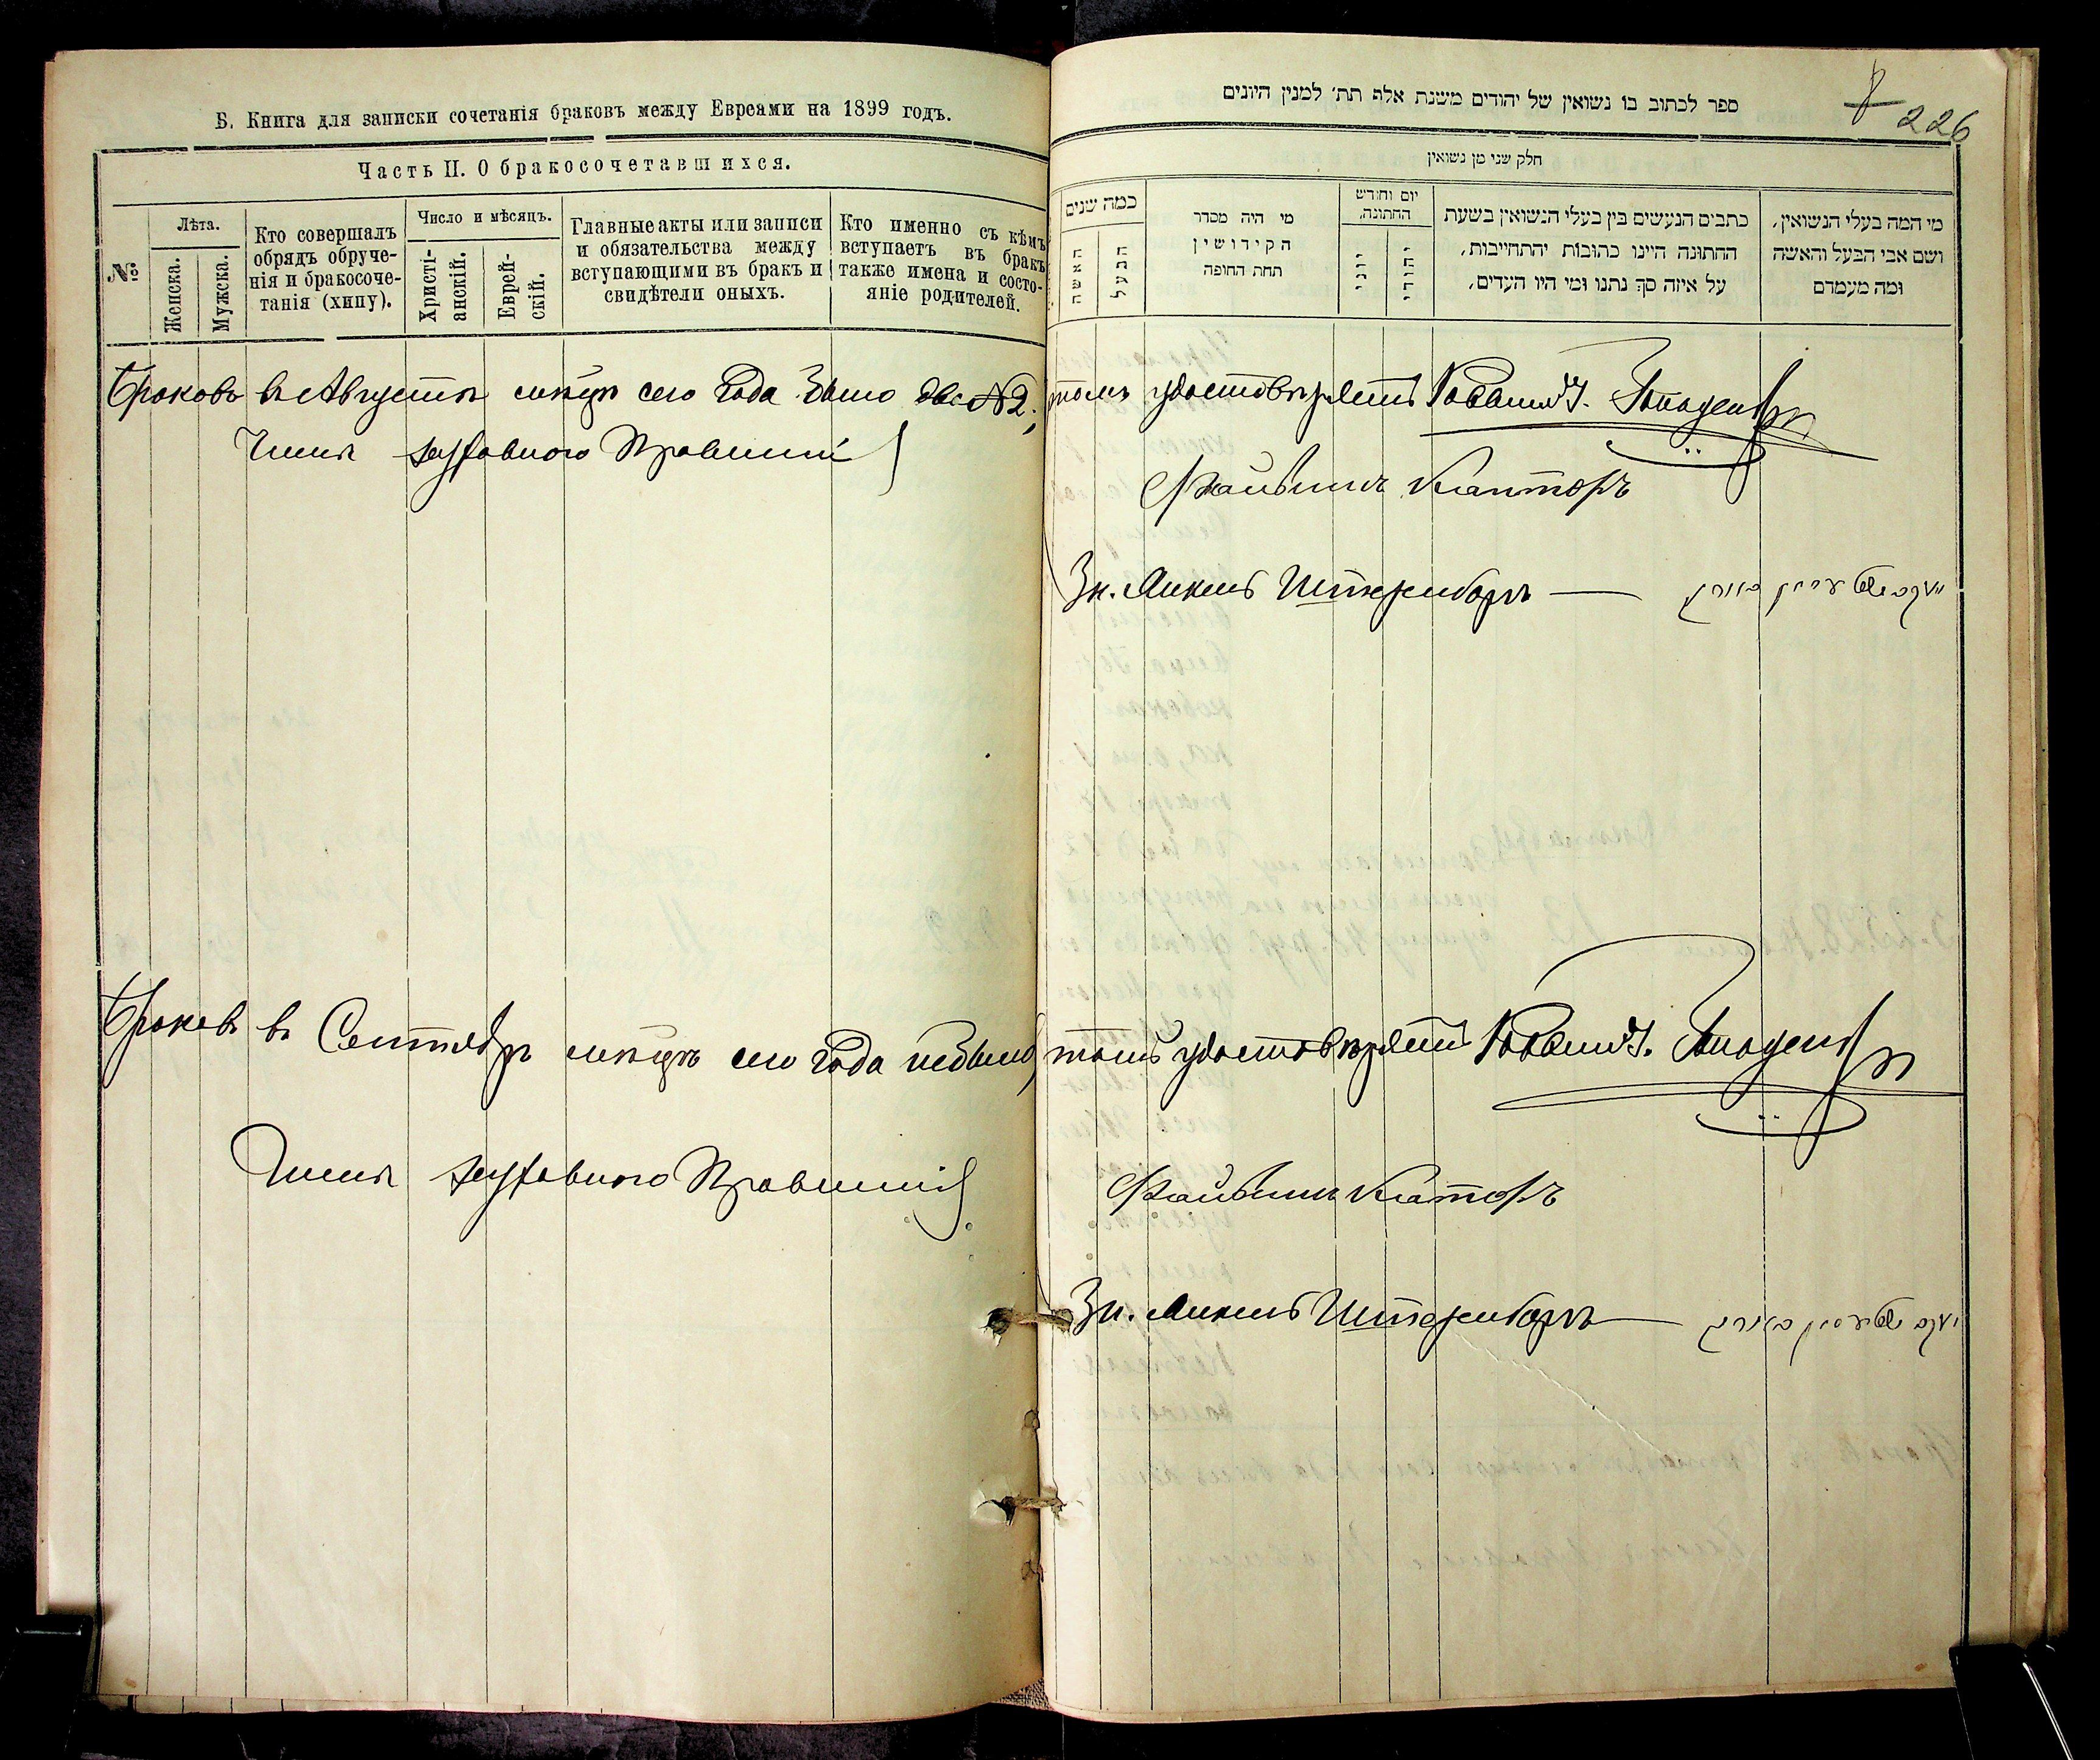 Б. Книга для записки сочетанія браковъ между Евреами на 1899 годъ.
Часть II. О бракосочетавшихся.
№
Лѣта.
Женска.
Мужска.
Кто совершалъ
обрядъ обруче-
нія и бракосоче-
танія (хипу).
Число и мѣсяцъ.
Христі-
анскій.
Еврей-
скій.
Главные акты или записи
и обязательства между
вступающими въ бракъ и
свидѣтели оныхъ.
Кто именно съ кѣмъ
вступаетъ въ бракъ
также имена и состо-
яніе родителей.
Браковъ въ Августѣ мѣсяцѣ сего года было два №2,
Члены духовного Правленія
Браковъ въ Сентябрѣ мѣсяцѣ сего года небыло
Члены духовного Правленія
ספר לכתוב בו נשואין של יהודים משנת אלף תת׳ למנין היונים
226
חלק שני מן נשואין
כמה שנים
האשה
הבעל
מי היה מסדר
הקידושין
תחת החופה
יום וחודש
החתונה,
יוני
יהודי
כתבים הנעשים בין בעלי הנשואין בשעת
החתונה היינו כתובות יהתחייבות,
על איזה סך נתנו ומי היו העדים,
מי המה בעלי הנשואין,
ושם אבי הבעל והאשה
ומה מעמדם
томъ удостовѣряетъ Раввинъ
Файвишъ Канторъ
Зн. Янкель Штернборъ —
томъ удостовѣряетъ Раввинъ
Файвишъ Канторъ
Зн. Янкель Штернборъ —